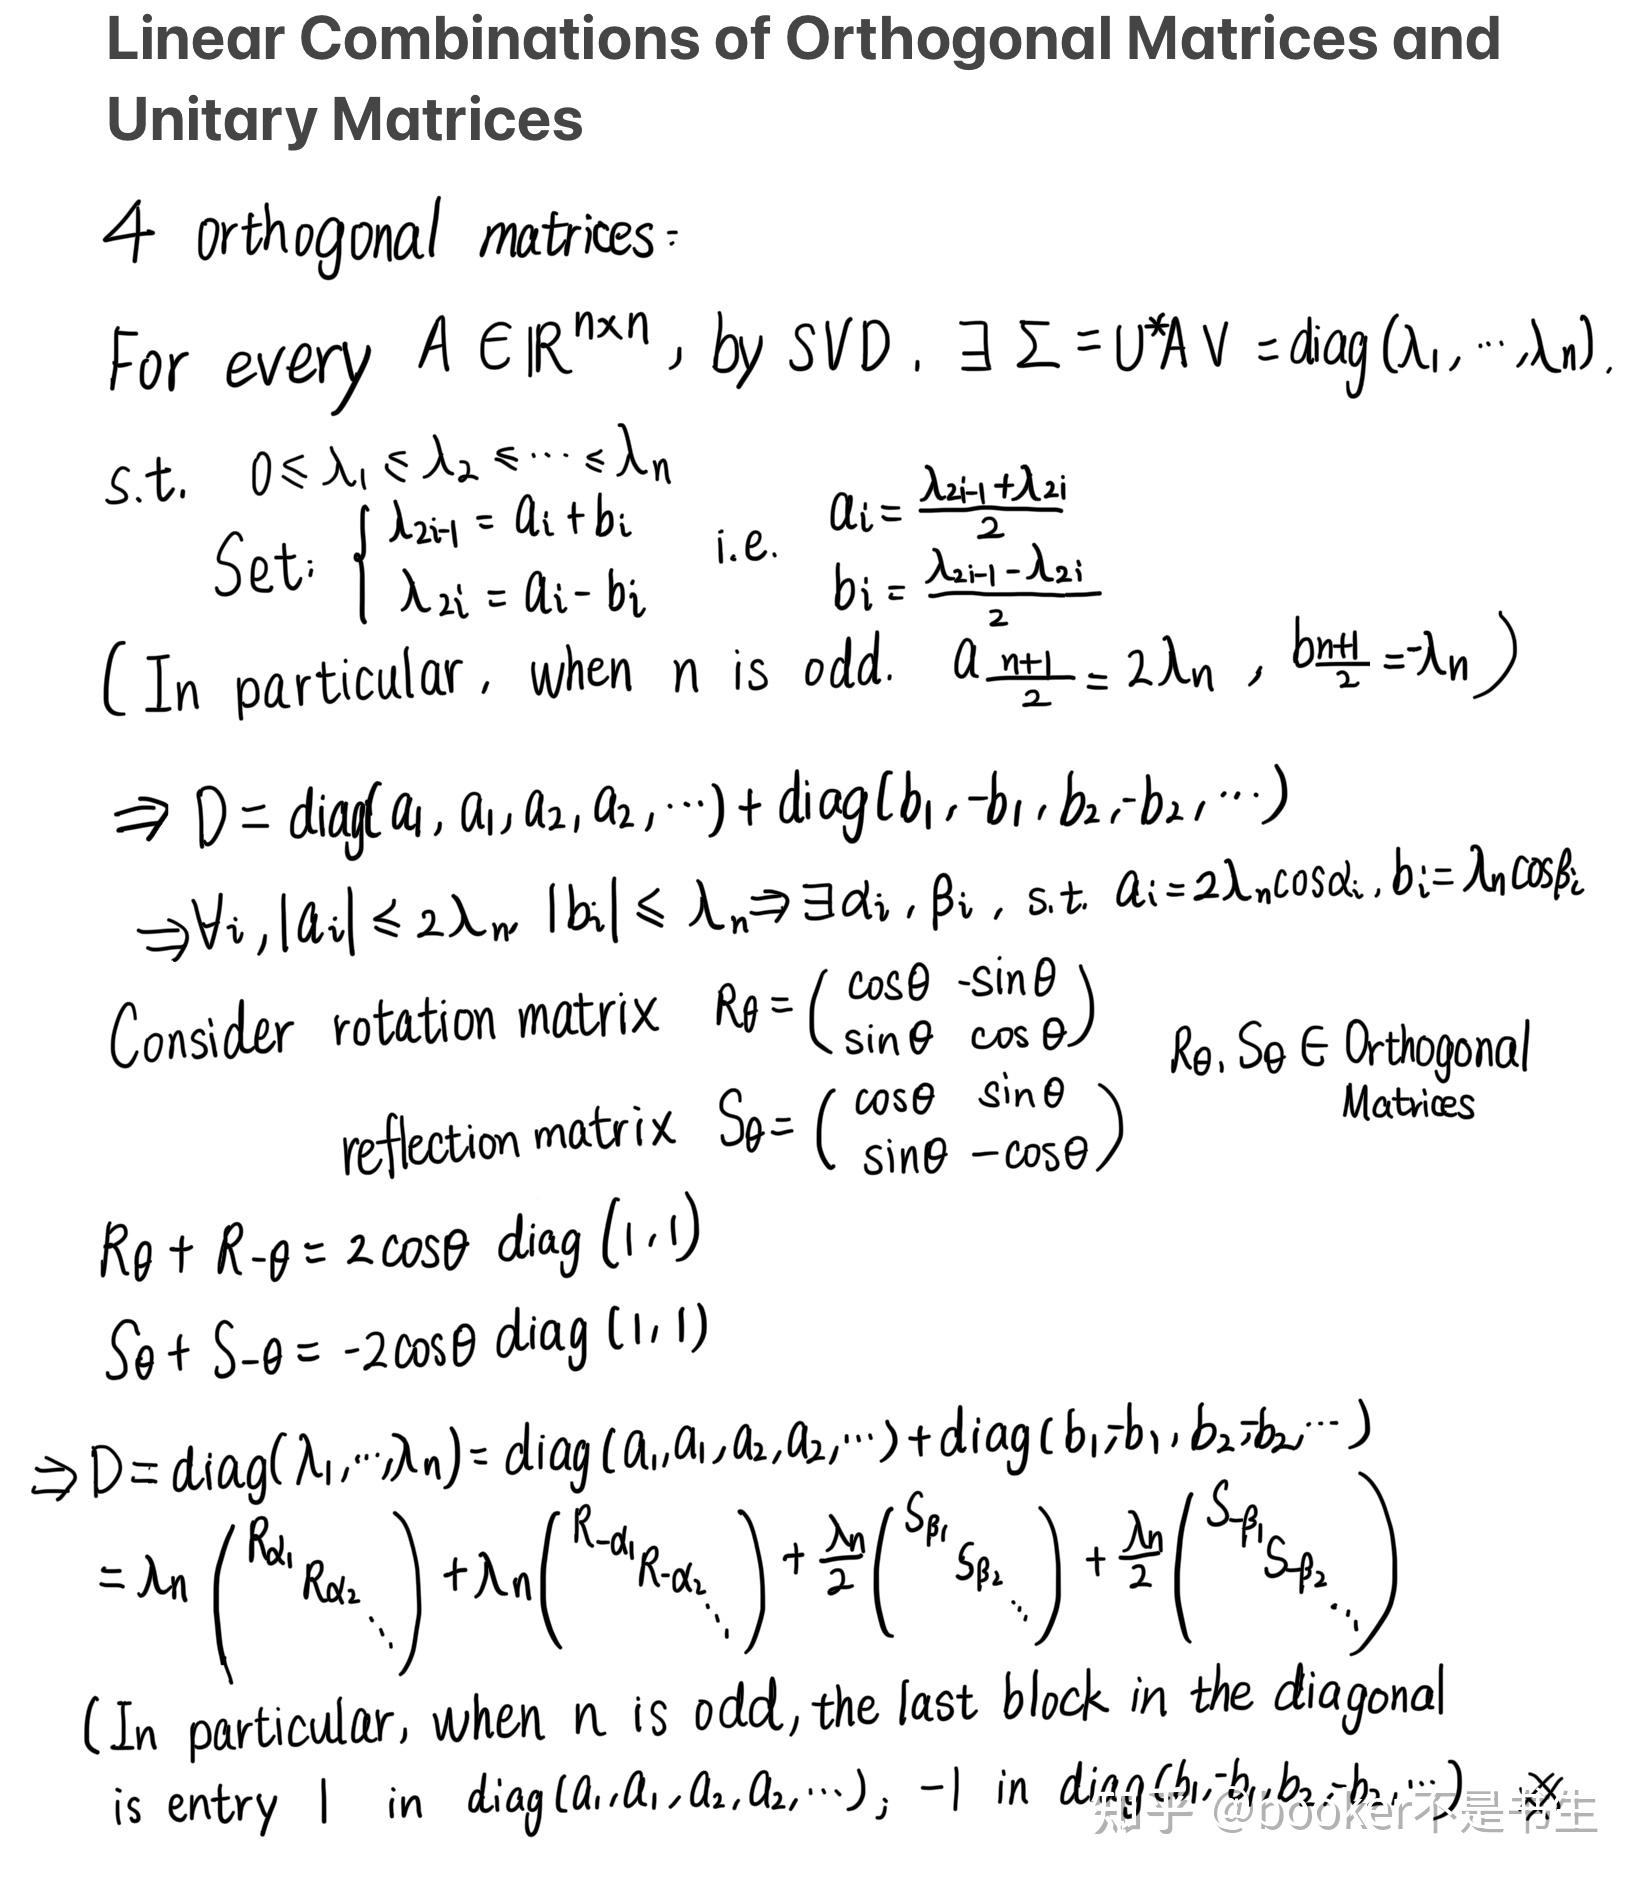 Linear Combinations of Orthogonal Matrices and
Unitary Matrices
4 orthogonal matrices:
For every A ∈ ℝ^{n×n}, by SVD, ∃ Σ = U*AV = diag(λ₁, ⋯, λn).
s.t. 0 ≤ λ₁ ≤ λ₂ ≤ ⋯ ≤ λn
Set: { λ_{2i-1} = ai + bi i.e. ai = (λ_{2i-1} + λ_{2i})/2
λ_{2i} = ai - bi bi = (λ_{2i-1} - λ_{2i})/2
(In particular, when n is odd. a_{(n+1)/2} = 2λn, b_{(n+1)/2} = -λn)
⇒ D = diag(a₁, a₁, a₂, a₂, ⋯) + diag(b₁, -b₁, b₂, -b₂, ⋯)
⇒ ∀i, |ai| ≤ 2λn, |bi| ≤ λn ⇒ ∃ αi, βi, s.t. ai = 2λn cosαi, bi = λn cosβi
Consider rotation matrix Rθ = ( cosθ -sinθ
sinθ cosθ ) Rθ, Sθ ∈ Orthogonal
Matrices
reflection matrix Sθ = ( cosθ sinθ
sinθ -cosθ )
Rθ + R-θ = 2cosθ diag(1, 1)
Sθ + S-θ = -2cosθ diag(1, 1)
⇒ D = diag(λ₁, ⋯, λn) = diag(a₁, a₁, a₂, a₂, ⋯) + diag(b₁, -b₁, b₂, -b₂, ⋯)
= λn ( Rα₁ Rα₂ ⋱ ) + λn ( R-α₁ R-α₂ ⋱ ) + λn/2 ( Sβ₁ Sβ₂ ⋱ ) + λn/2 ( S-β₁ S-β₂ ⋱ )
(In particular, when n is odd, the last block in the diagonal
is entry 1 in diag(a₁, a₁, a₂, a₂, ⋯), -1 in diag(b₁, -b₁, b₂, -b₂, ⋯) ※
知乎 @booker不是书生